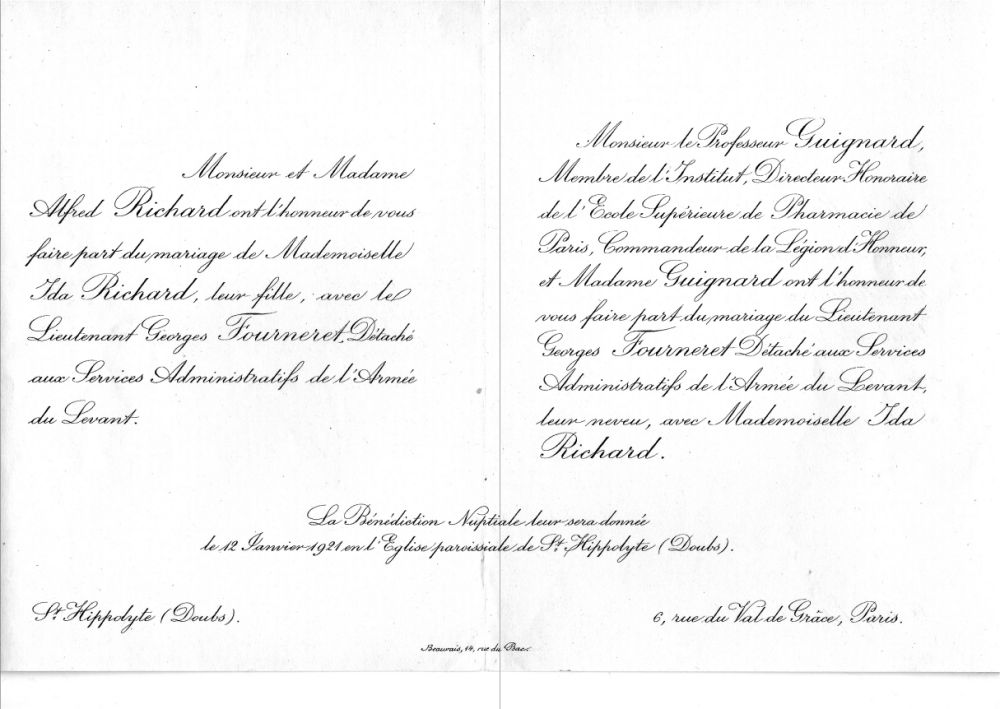 Monsieur et Madame
Alfred Richard ont l'honneur de vous
faire part du mariage de Mademoiselle
Ida Richard, leur fille, avec le
Lieutenant Georges Fourneret Détaché
aux Services Administratifs de l'Armée
du Levant.
Monsieur le Professeur Guignard,
Membre de l'Institut, Directeur Honoraire
de l'Ecole Supérieure de Pharmacie de
Paris, Commandeur de la Légion d'Honneur,
et Madame Guignard ont l'honneur de
vous faire part du mariage du Lieutenant
Georges Fourneret Détaché aux Services
Administratifs de l'Armée du Levant,
leur neveu, avec Mademoiselle Ida
Richard.
La Bénédiction Nuptiale leur sera donnée
le 12 Janvier 1921 en l'Eglise paroissiale de St Hippolyte (Doubs).
St Hippolyte (Doubs).
6, rue du Val de Grâce, Paris.
Beauvais, 14, rue du Bac.